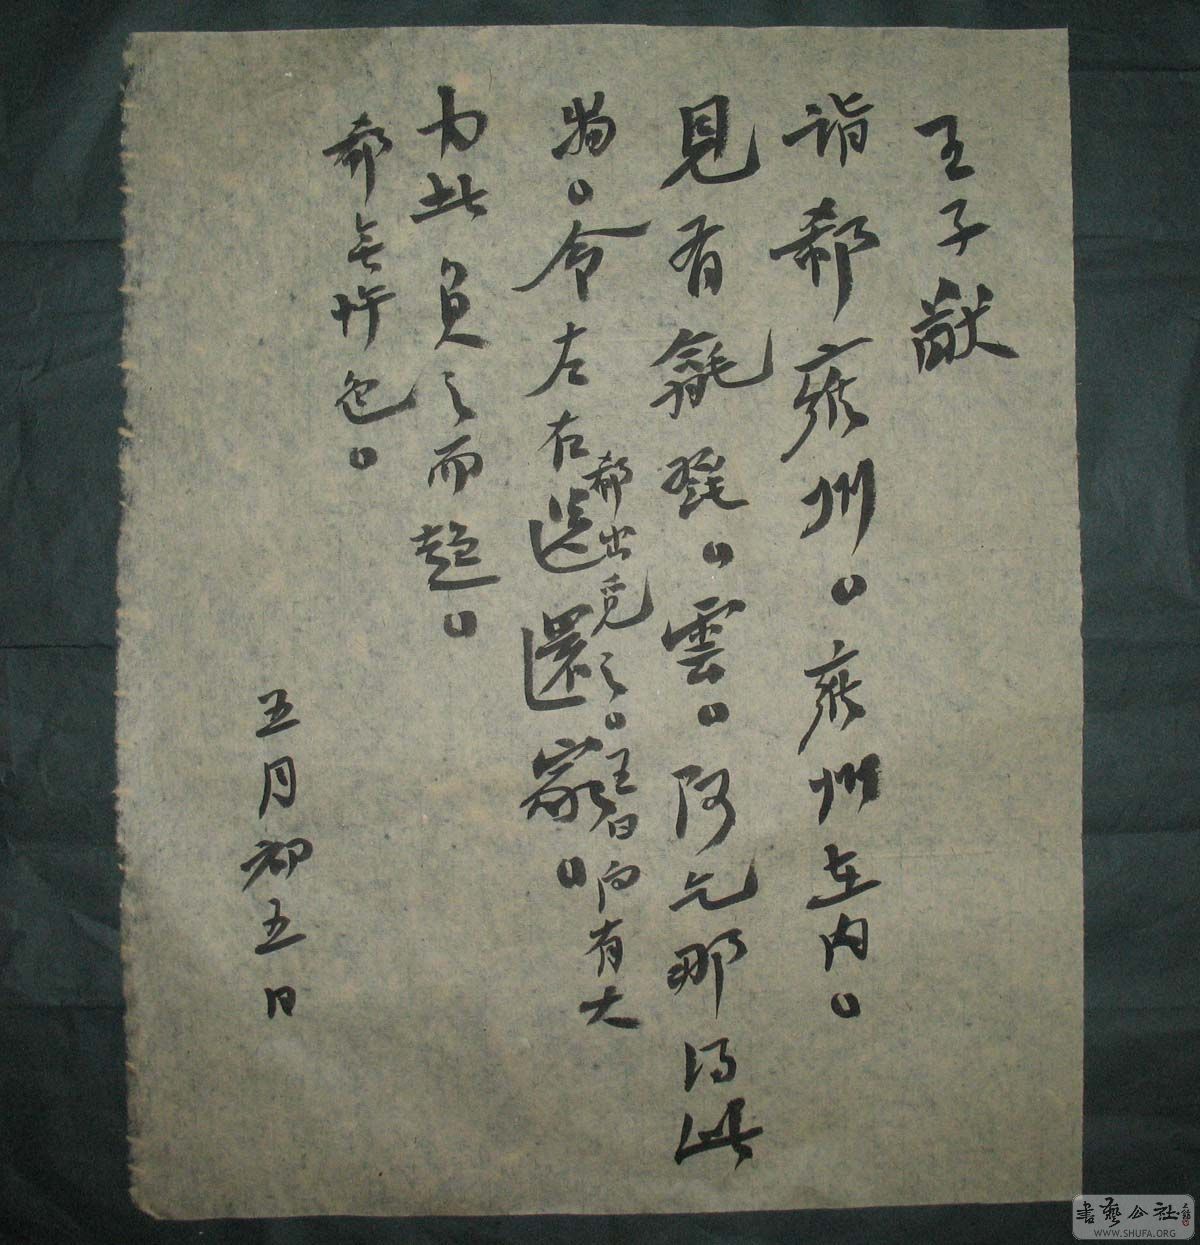 王子猷
詣郗雍州。雍州在内。
見有㲪。雲。阿乞那得此
物。令左右送還家。
郗出覓之。王曰响有大
力此負之而趨。
郗無忤色。
五月初五日
書藝公社
WWW.SHUFA.ORG